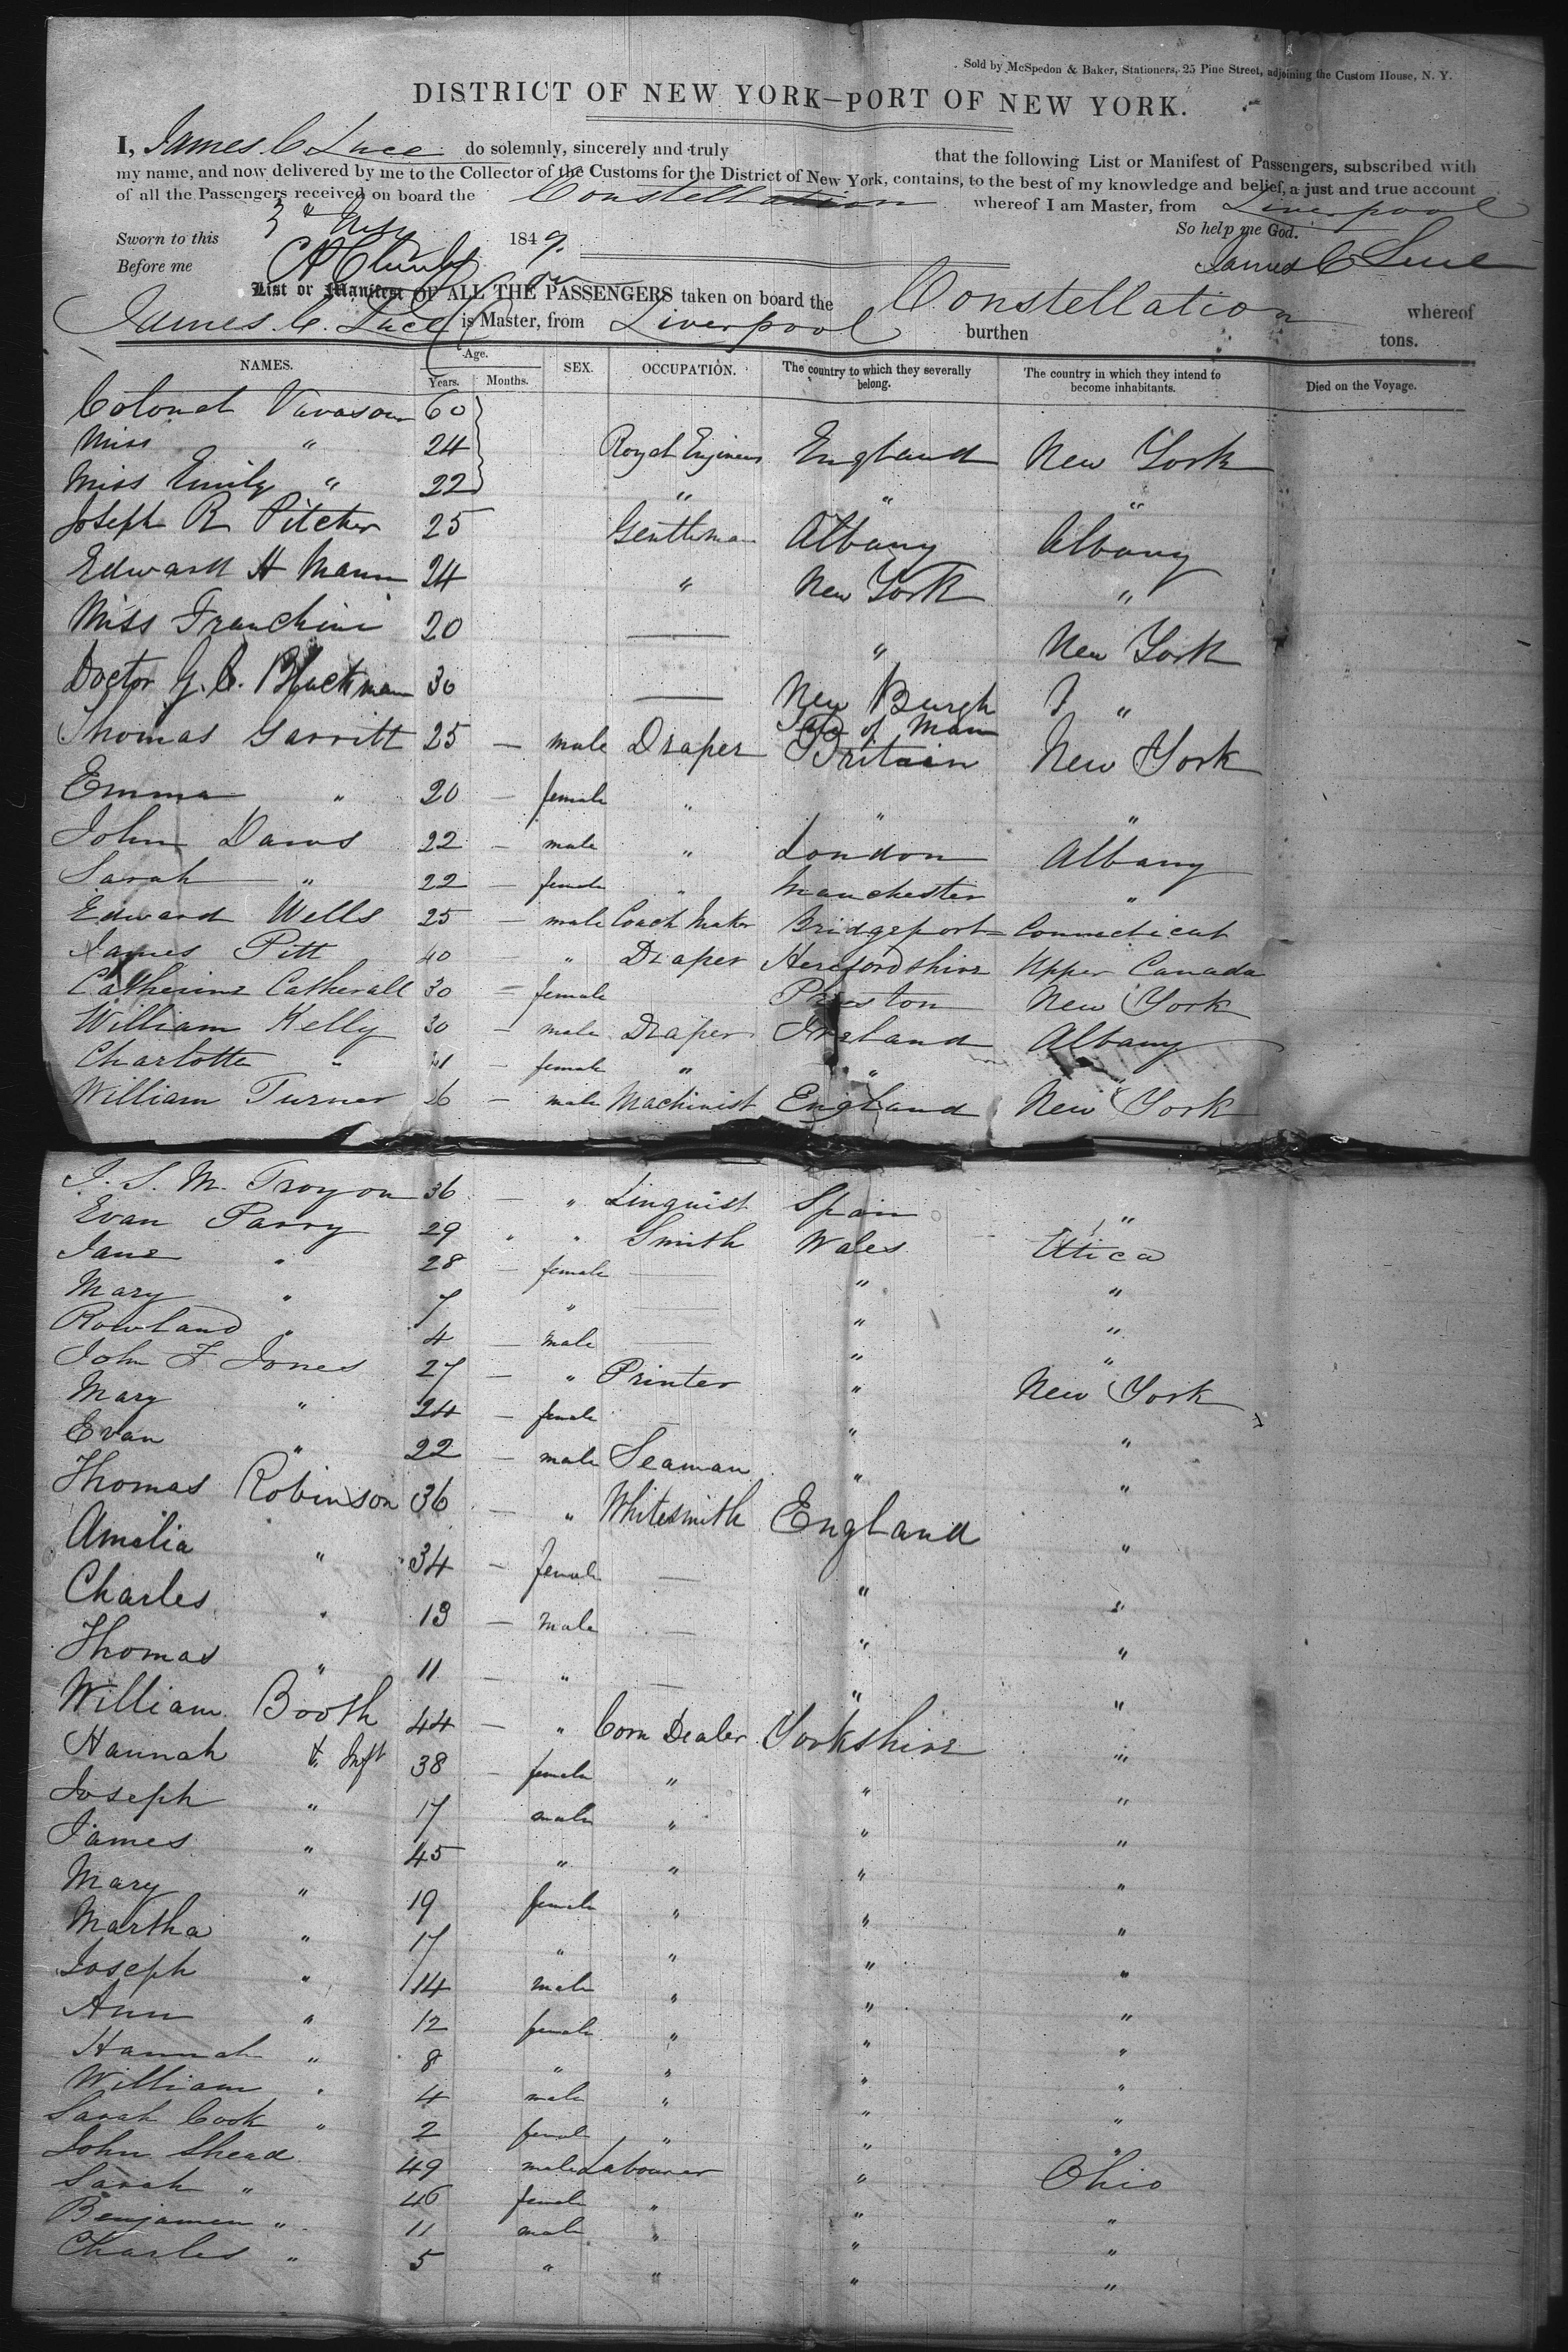 Sold by McSpedon & Baker, Stationers, 25 Pine Street, adjoining the Custom House, N. Y.
DISTRICT OF NEW YORK—PORT OF NEW YORK.
I, James C Luce do solemnly, sincerely and truly that the following List or Manifest of Passengers, subscribed with
my name, and now delivered by me to the Collector of the Customs for the District of New York, contains, to the best of my knowledge and belief, a just and true account
of all the Passengers received on board the Constellation whereof I am Master, from Liverpool
Sworn to this 1849. So help me God.
Before me James C Luce
List or Manifest OF ALL THE PASSENGERS taken on board the Constellation whereof
James C. Luce is Master, from Liverpool burthen tons.
NAMES. Age. Years. Months. SEX. OCCUPATION. The country to which they severally belong. The country in which they intend to become inhabitants. Died on the Voyage.
Colonel Vavasour 60
Miss " 24 Royal Engineers England New York
Miss Emily " 22 " " "
Joseph R Pitcher 25 Gentleman Albany Albany
Edward H Mann 24 " New York "
Miss Franchini 20 — " New York
Doctor G. C. Blackman 30 — New Burgh "
Isle of Man
Thomas Garritt 25 — male Draper Britain New York
Emma " 20 — female " " "
John Daws 22 — male " London Albany
Sarah " 22 — female " Manchester "
Edward Wells 25 — male Coach Maker Bridgeport Connecticut
James Pitt 40 — " Draper Herefordshire Upper Canada
Catherine Catherall 30 — female Preston New York
William Kelly 30 — male Draper Ireland Albany
Charlotte " — female " " "
William Turner 26 — male Machinist England New York
J. S. M. Troyon 36 — " Linguist Spain "
Evan Parry 29 " " Smith Wales Utica
Jane " 28 — female — " "
Mary " 7 " — " "
Rowland " 4 — male — " "
John F Jones 27 — " Printer " New York
Mary " 24 — female — " "
Evan " 22 — male Seaman " "
Thomas Robinson 36 — " Whitesmith England "
Amelia " 34 — female — " "
Charles " 13 — male — " "
Thomas " 11 — " — " "
William Booth 44 — " Corn Dealer Yorkshire "
Hannah & Inft 38 — female " " "
Joseph " 17 male " " "
James " 45 " " " "
Mary " 19 female " " "
Martha " 17 " " " "
Joseph " 14 male " " "
Ann " 12 female " " "
Hannah " 8 " " " "
William " 4 male " " "
Sarah Cook " 2 female " " "
John Shead 49 male Labourer " Ohio
Sarah " 46 female " " "
Benjamen " 11 male " " "
Charles " 5 " " " "